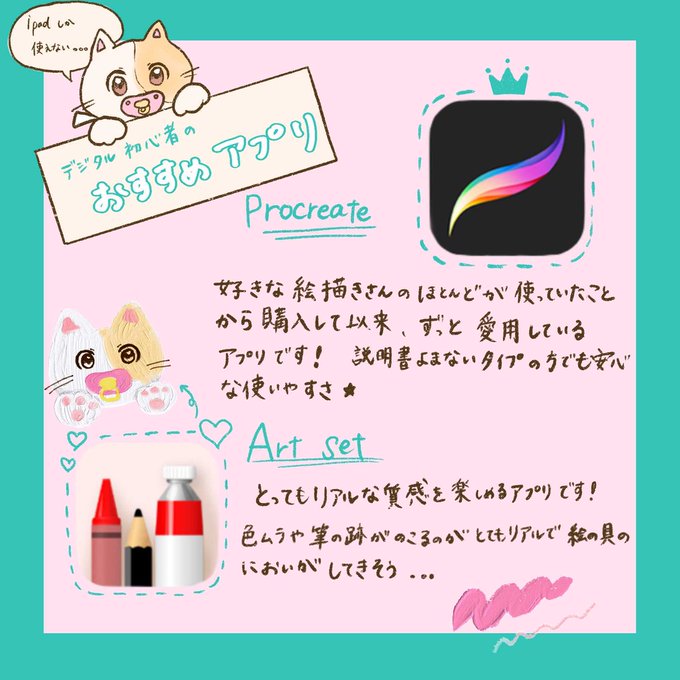 ipadしか
使えない...
デジタル初心者の
おすすめアプリ
Procreate
好きな絵描きさんのほとんどが使っていたこと
から購入して以来、ずっと愛用している
アプリです! 説明書よまないタイプの方でも安心
な使いやすさ★
Art set
とってもリアルな質感を楽しめるアプリです!
色ムラや筆の跡がのこるのがとてもリアルで絵の具の
においがしてきそう...